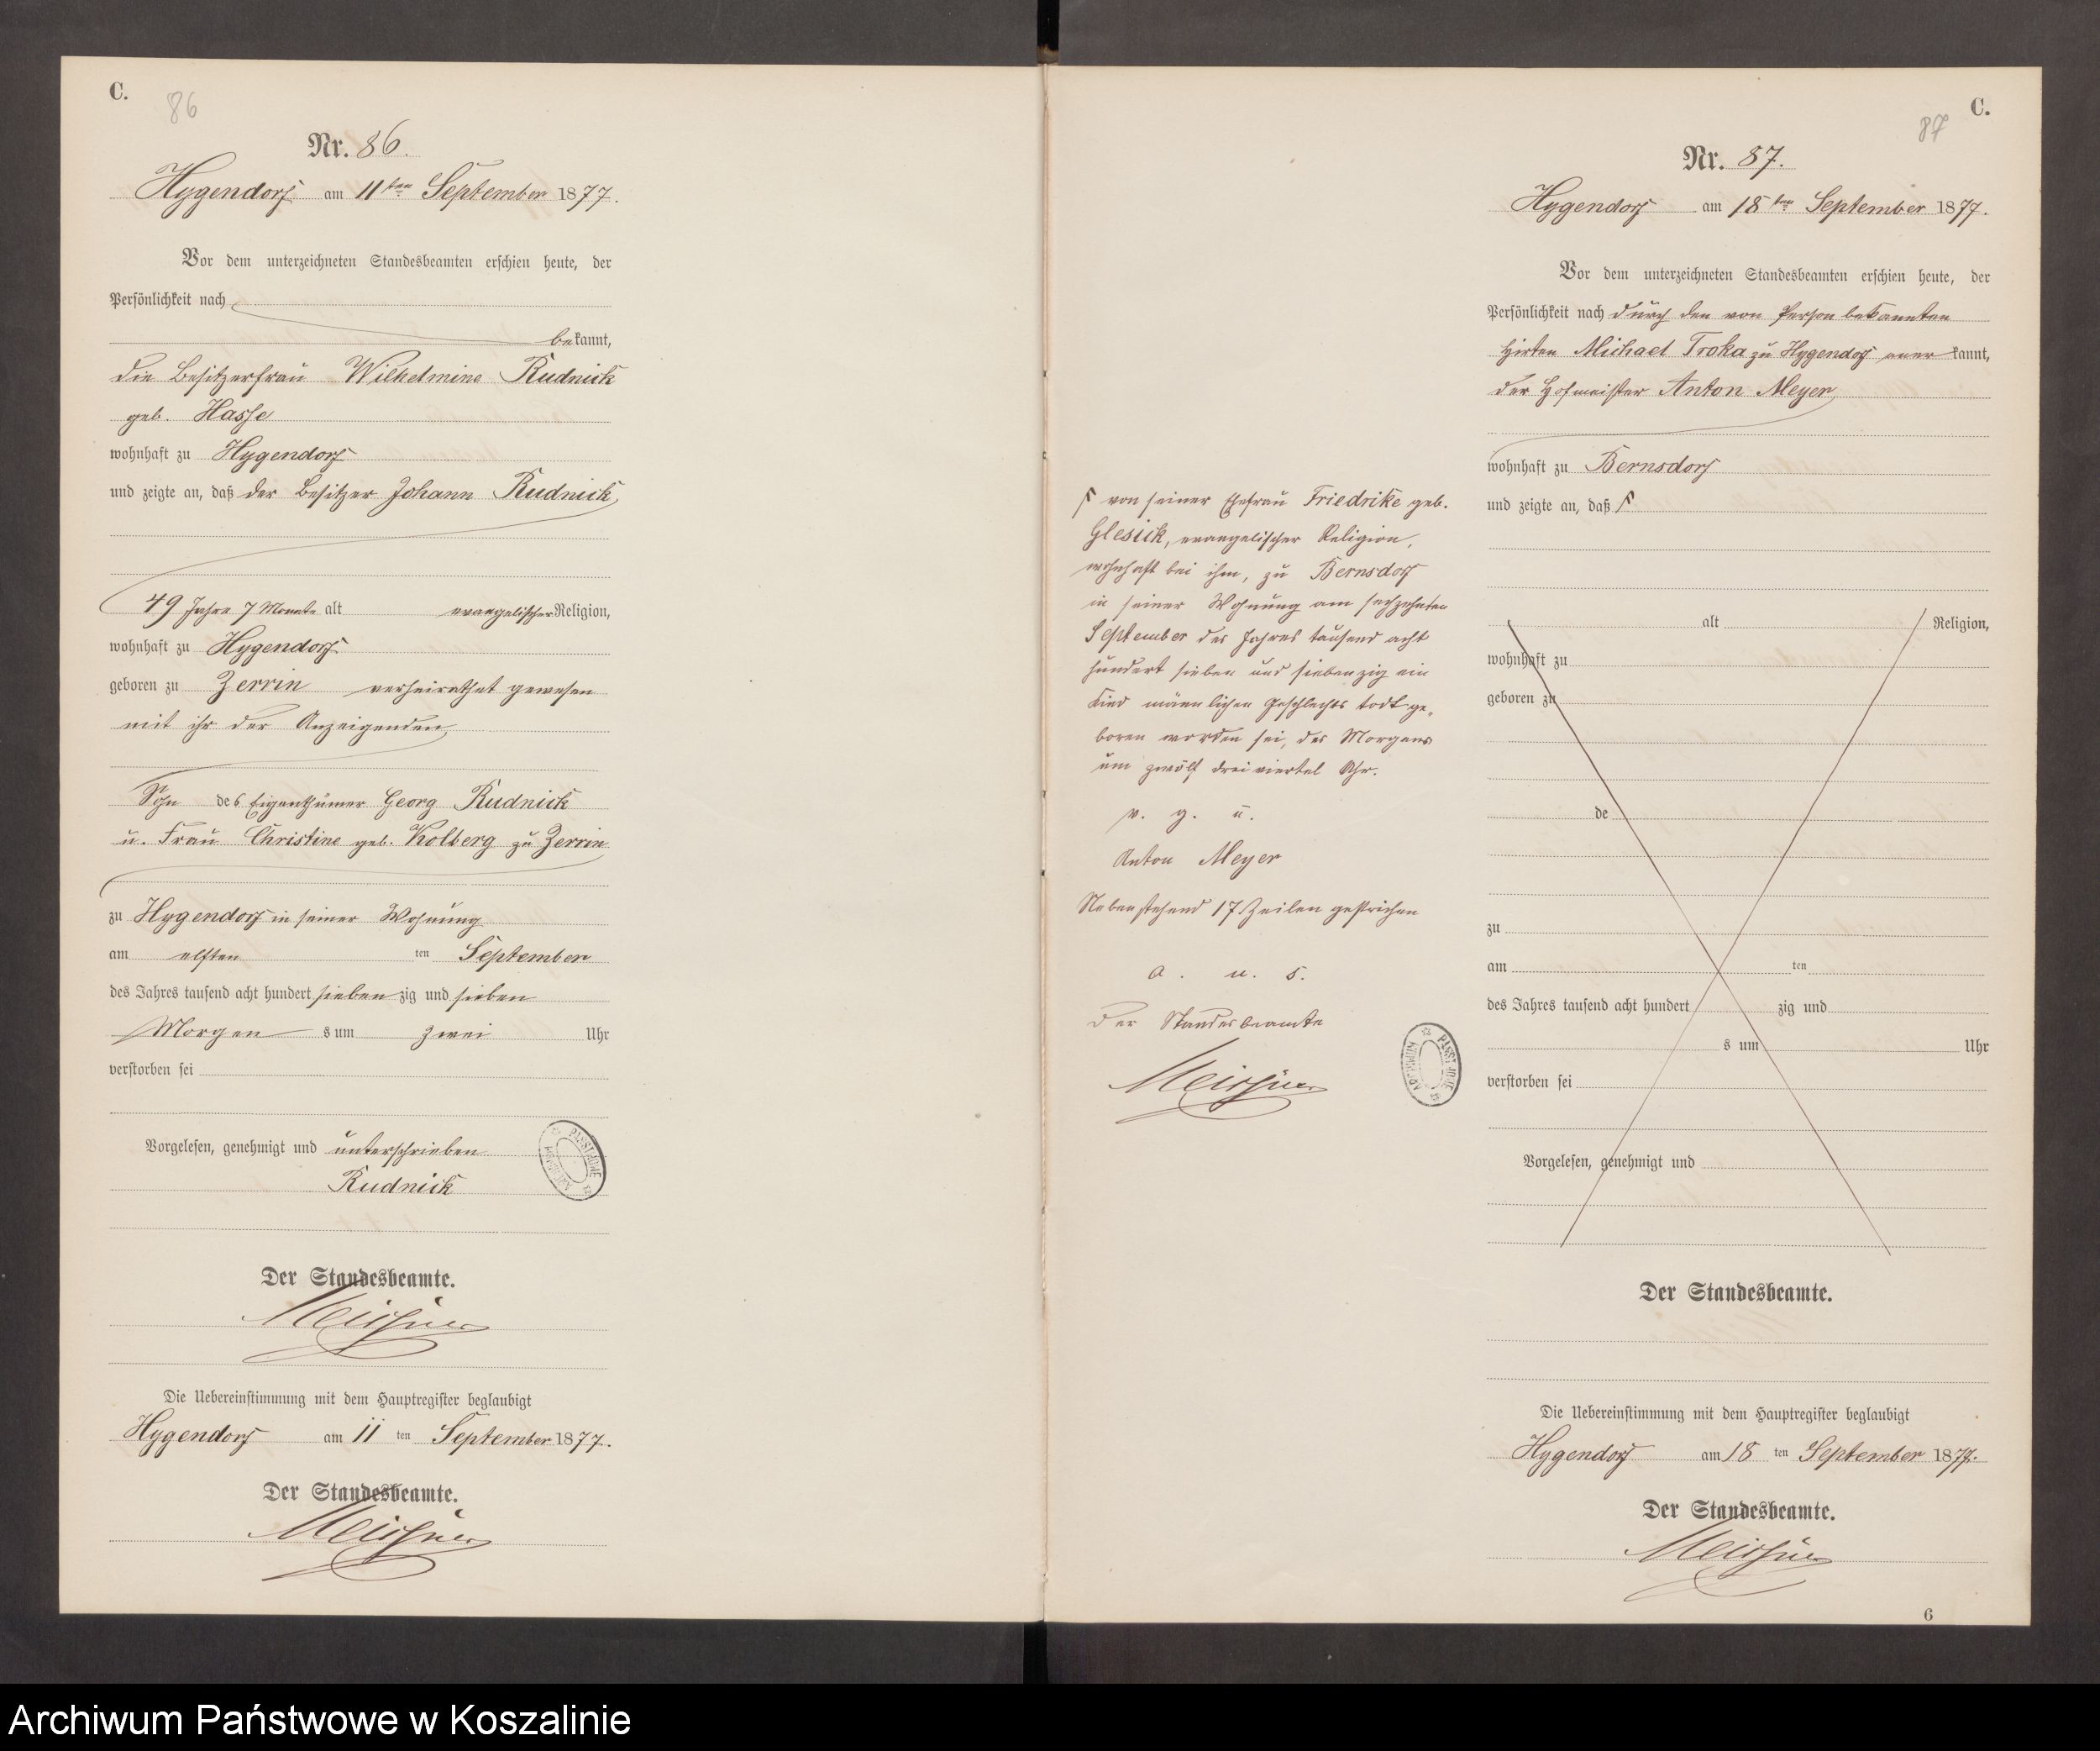 C.
86
Nr. 86.
Hygendorf am 11ten September 1877.
Vor dem unterzeichneten Standesbeamten erschien heute, der
Persönlichkeit nach
bekannt,
die Besitzerfrau Wilhelmine Rudnick
geb. Hasse
wohnhaft zu Hygendorf
und zeigte an, daß der Besitzer Johann Rudnick,
49 Jahre 7 Monate alt evangelischer Religion,
wohnhaft zu Hygendorf
geboren zu Zerrin verheirathet gewesen
mit ihr der Anzeigenden,
Sohn des Eigenthümer Georg Rudnick
u. Frau Christine geb. Kolberg zu Zerrin
zu Hygendorf in seiner Wohnung
am elften ten September
des Jahres tausend acht hundert siebenzig und sieben
Morgens um zwei Uhr
verstorben sei
Vorgelesen, genehmigt und unterschrieben
Rudnick
Der Standesbeamte.
Die Uebereinstimmung mit dem Hauptregister beglaubigt
Hygendorf am 11 ten September 1877.
Der Standesbeamte.
C.
87
Nr. 87.
Hygendorf am 18ten September 1877.
Vor dem unterzeichneten Standesbeamten erschien heute, der
Persönlichkeit nach durch den von Person bekannten
Hirten Michael Troka zu Hygendorf anerkannt,
der Hofmeister Anton Meyer
wohnhaft zu Bernsdorf
und zeigte an, daß
von seiner Ehefrau Friedrike geb.
Glesick, evangelischer Religion,
wohnhaft bei ihm, zu Bernsdorf
in seiner Wohnung am sechzehnten
September des Jahres tausend acht
hundert sieben und siebenzig ein
Kind männlichen Geschlechts todt ge-
boren worden sei, des Morgens
um zwölf dreiviertel Uhr.
v. g. u.
Anton Meyer
Nebenstehend 17 Zeilen gestrichen
a. u. s.
Der Standesbeamte
alt Religion,
wohnhaft zu
geboren zu
de
zu
am ten
des Jahres tausend acht hundert zig und
s um Uhr
verstorben sei
Vorgelesen, genehmigt und
Der Standesbeamte.
Die Uebereinstimmung mit dem Hauptregister beglaubigt
Hygendorf am 18 ten September 1877.
Der Standesbeamte.
6
Archiwum Państwowe w Koszalinie